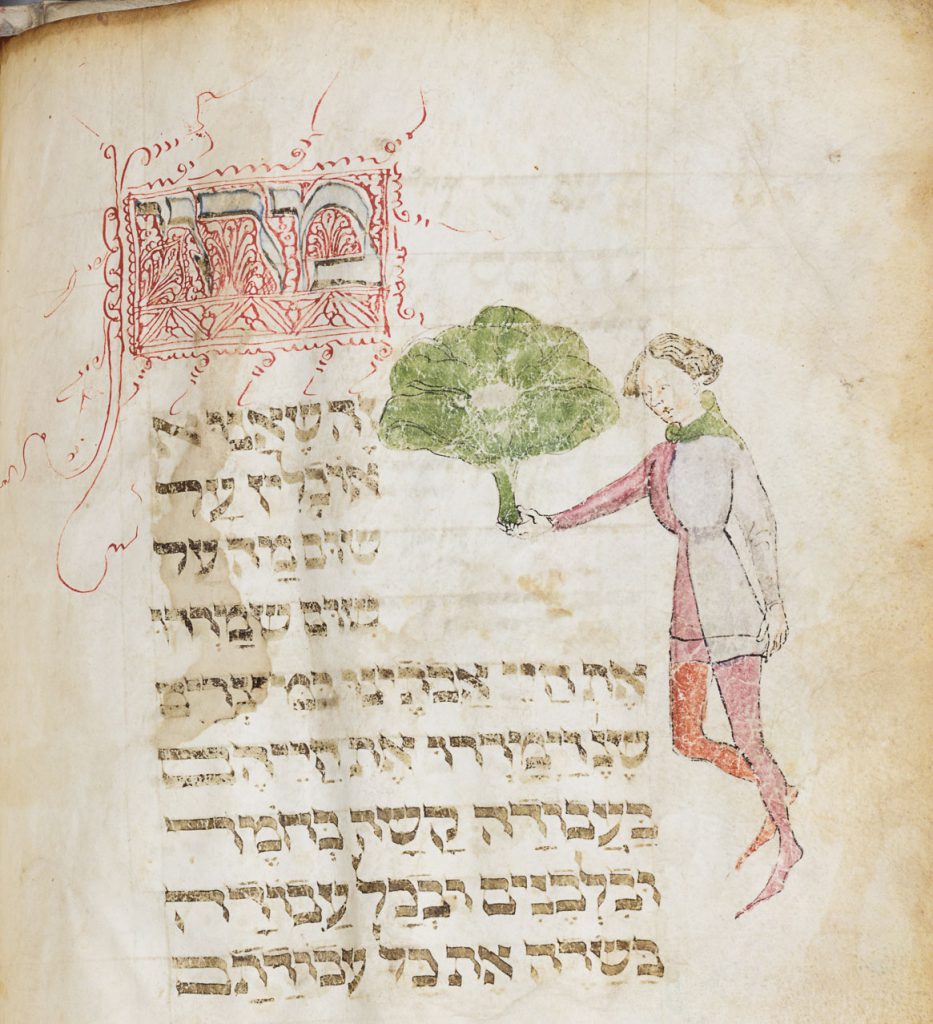 מרור
זה שאנו א
אוכלין על
שום מה על
שום שמררו
את חיי אבתינו במצרים
שנ' וימררו את חייהם
בעבודה קשה בחמר
ובלבנים ובכל עבודה
בשדה את כל עבודתם